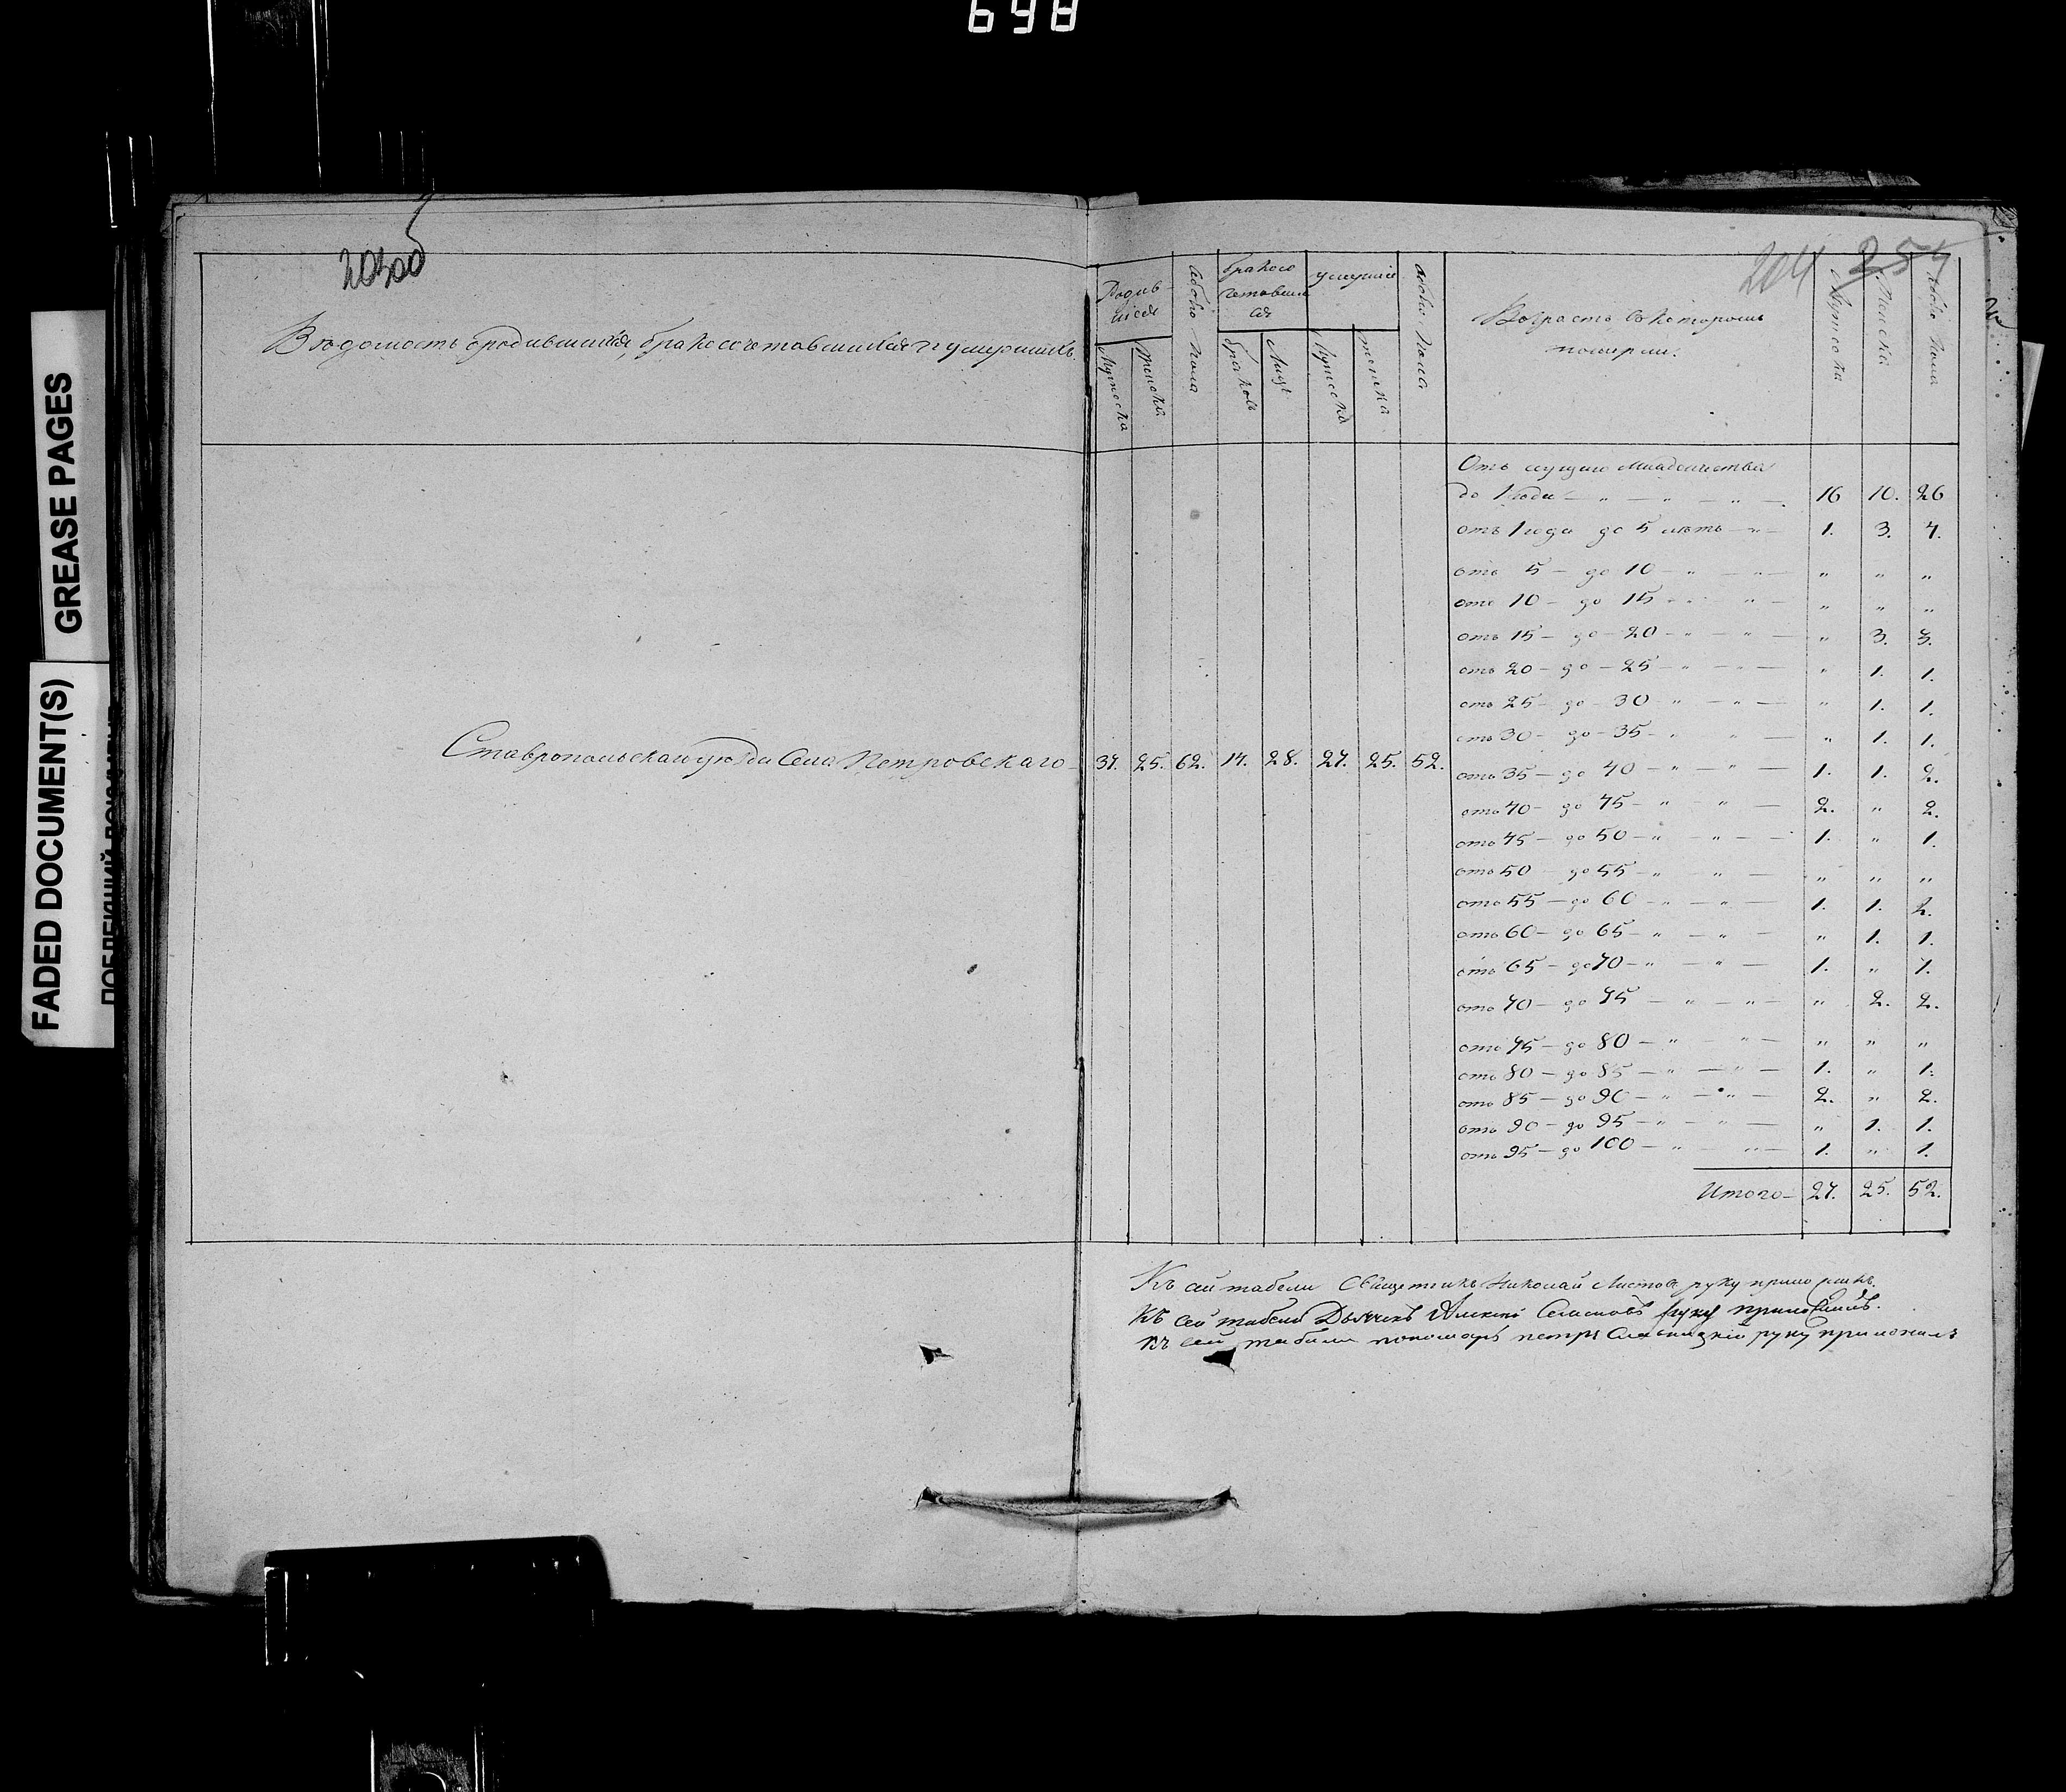 698
GREASE PAGES
FADED DOCUMENT(S)
203об
204 254
Ведомость о родившихся, бракосочетавшихся и умершихъ.
Родив-
шіеся
Мужеска
Женска
Обоего пола
Бракосо
четавшие
ся
браковъ
Лицъ
умершіе
Мужеска
женска
обоего пола
Возрастъ въ которомъ
померли.
Мужеска
Женска
Обоего пола
Ставропольскаго уѣзда Села Петровскаго 37. 25. 62. 14. 28. 27. 25. 52.
Отъ сущаго младенчества
до 1 года — „ — „ — „ — 16 10. 26
отъ 1 года до 5 летъ — „ — 1. 3. 4.
отъ 5 — до 10 — „ — „ — „ „ „
отъ 10 — до 15 — „ — „ — „ „ „
отъ 15 — до — 20 — „ — „ — „ 3. 3.
отъ 20 — до — 25 — „ — „ — „ 1. 1.
отъ 25 — до — 30 — „ — „ — „ 1. 1.
отъ 30 — до — 35 — „ — „ — „ 1. 1.
отъ 35 — до 40 — „ — „ — 1. 1. 2.
отъ 40 — до 45 — „ — „ — 2. „ 2.
отъ 45 — до 50 — „ — „ — 1. „ 1.
отъ 50 — до 55 — „ — „ — „ „ „
отъ 55 — до 60 — „ — „ — 1. 1. 2.
отъ 60 — до 65 — „ — „ — „ 1. 1.
отъ 65 — до 70 — „ — „ — 1. „ 1.
отъ 70 — до 75 — „ — „ — „ 2. 2.
отъ 75 — до 80 — „ — „ — „ „ „
отъ 80 — до 85 — „ — „ — 1. „ 1.
отъ 85 — до 90 — „ — „ — 2. „ 2.
отъ 90 — до 95 — „ — „ — „ 1. 1.
отъ 95 — до 100 — „ — „ — 1. „ 1.
Итого — 27. 25. 52.
Къ сей табели Священникъ Николай руку приложилъ.
Къ сей табели Дьячекъ Алексей руку приложилъ.
Къ сей табели пономарь петръ руку приложилъ